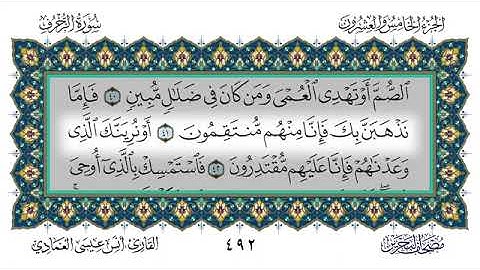 الجزء الخامس والعشرون
سورة الزخرف
ٱلصُّمَّ أَوْ تَهْدِى ٱلْعُمْىَ وَمَن كَانَ فِى ضَلَٰلٍ مُّبِينٍ ٤٠ فَإِمَّا
نَذْهَبَنَّ بِكَ فَإِنَّا مِنْهُم مُّنتَقِمُونَ ٤١ أَوْ نُرِيَنَّكَ ٱلَّذِى
وَعَدْنَٰهُمْ فَإِنَّا عَلَيْهِم مُّقْتَدِرُونَ ٤٢ فَٱسْتَمْسِكْ بِٱلَّذِىٓ أُوحِىَ
٤٩٢
القارئ أنس عيسى العمادي